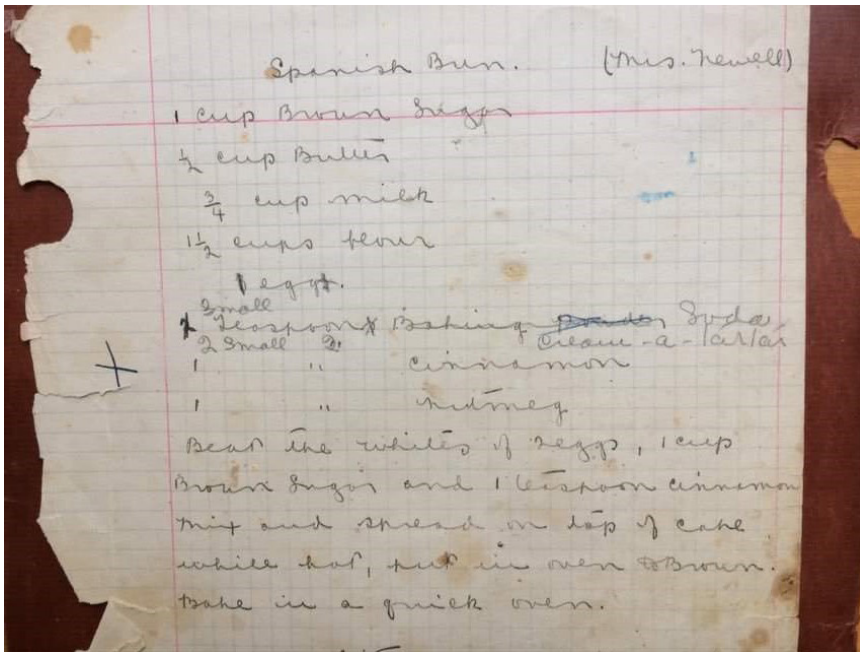 Spanish Bun. (Mrs. Newell)
1 cup Brown Sugar
½ cup Butter
¾ cup milk
1½ cups flour
1 egg.
small
1 Teaspoon Baking Soda
2 small " Cream-a-Tartar
1 " cinnamon
1 " nutmeg
Beat the whites of 2 eggs, 1 cup
Brown Sugar and 1 teaspoon cinnamon
mix and spread on top of cake
while hot, put in oven & Brown.
Bake in a quick oven.